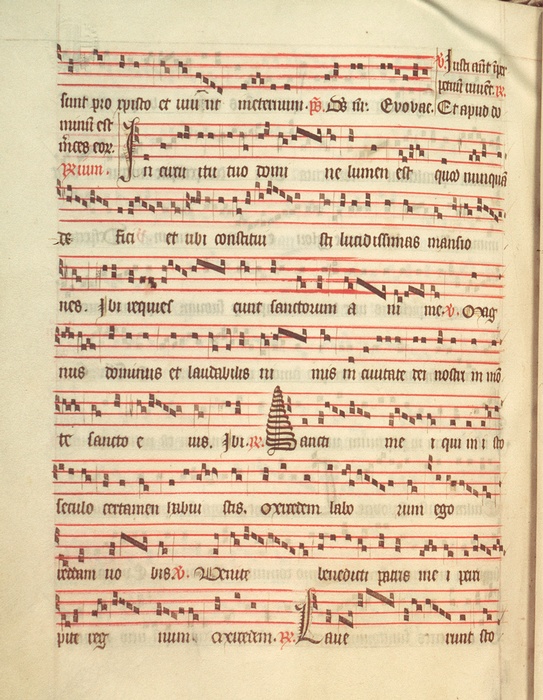 ℣. Justi aut
sunt pro xpisto et viuunt meternum. ps. Ds in. Evovae. Et apud do
minu est
mces eor.
In circu itu tuo domi ne lumen est quod nunqua
de fici et ubi constitui sti lucidissimas mansio
nes Ibi requies cunt sanctorum a ni me. ℣. Mag
nus dominus et laudabilis ni mis in ciuitate dei nostri in mo
te sancto e ius. Ibi. ℟. Sancti me i qui in isto
seculo certamen habui stis. mercedem labo rum ego
reddam uo bis. ℣. Venite benedicti patris me i perci
pite reg num. mercedem. ℟. Laue runt sto